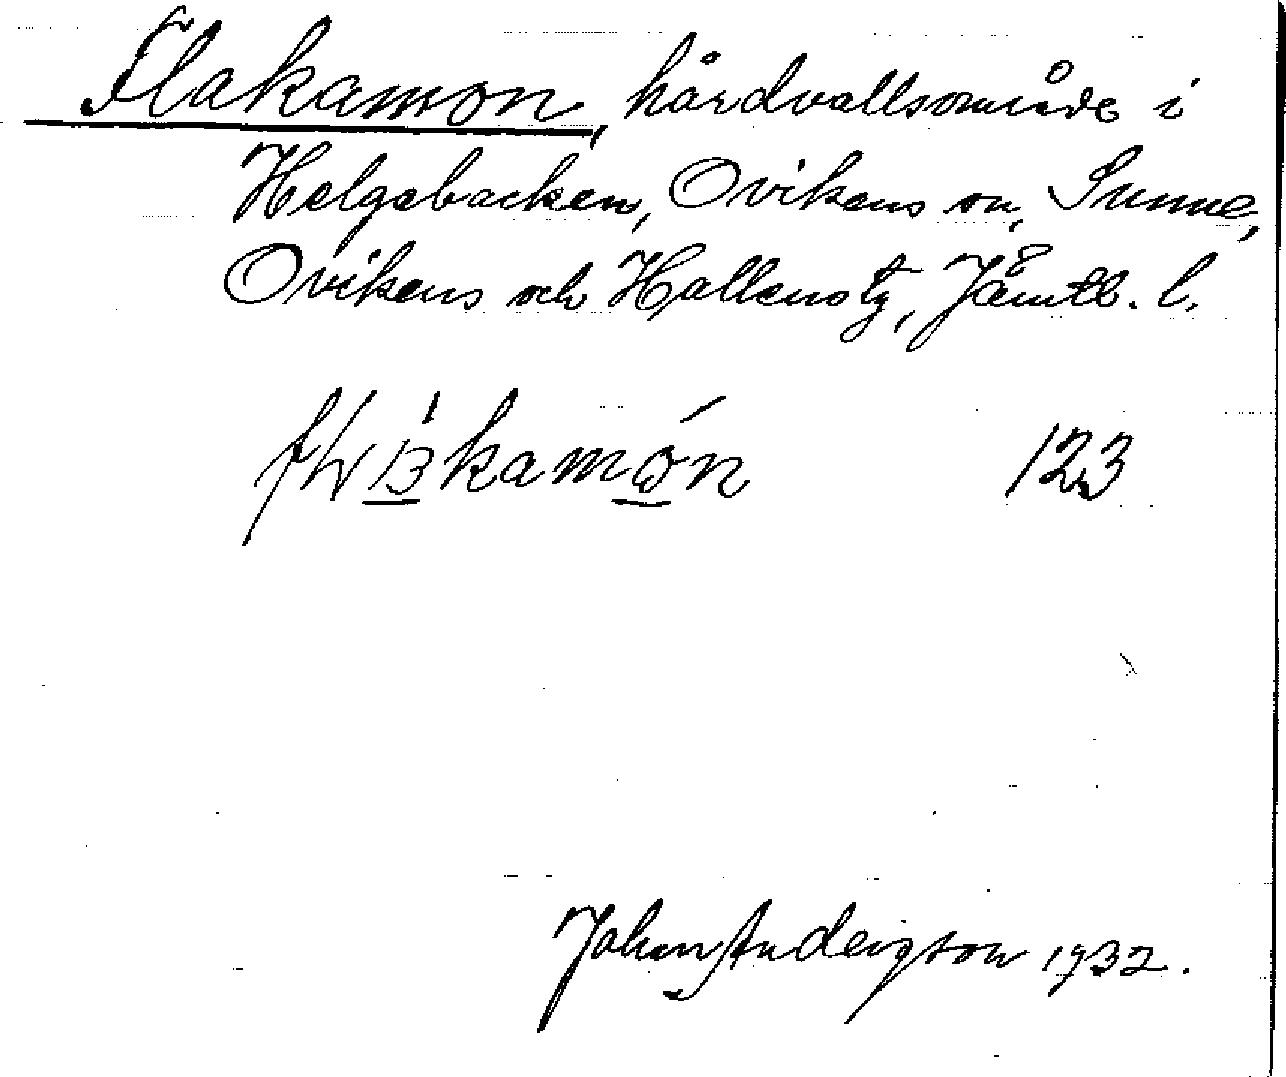 Flakamon, hårdvallsområde i
Helgebacken, Ovikens sn, Sunne,
Ovikens och Hallens tg, Jämtl. l.
123
John Andersson 1932.